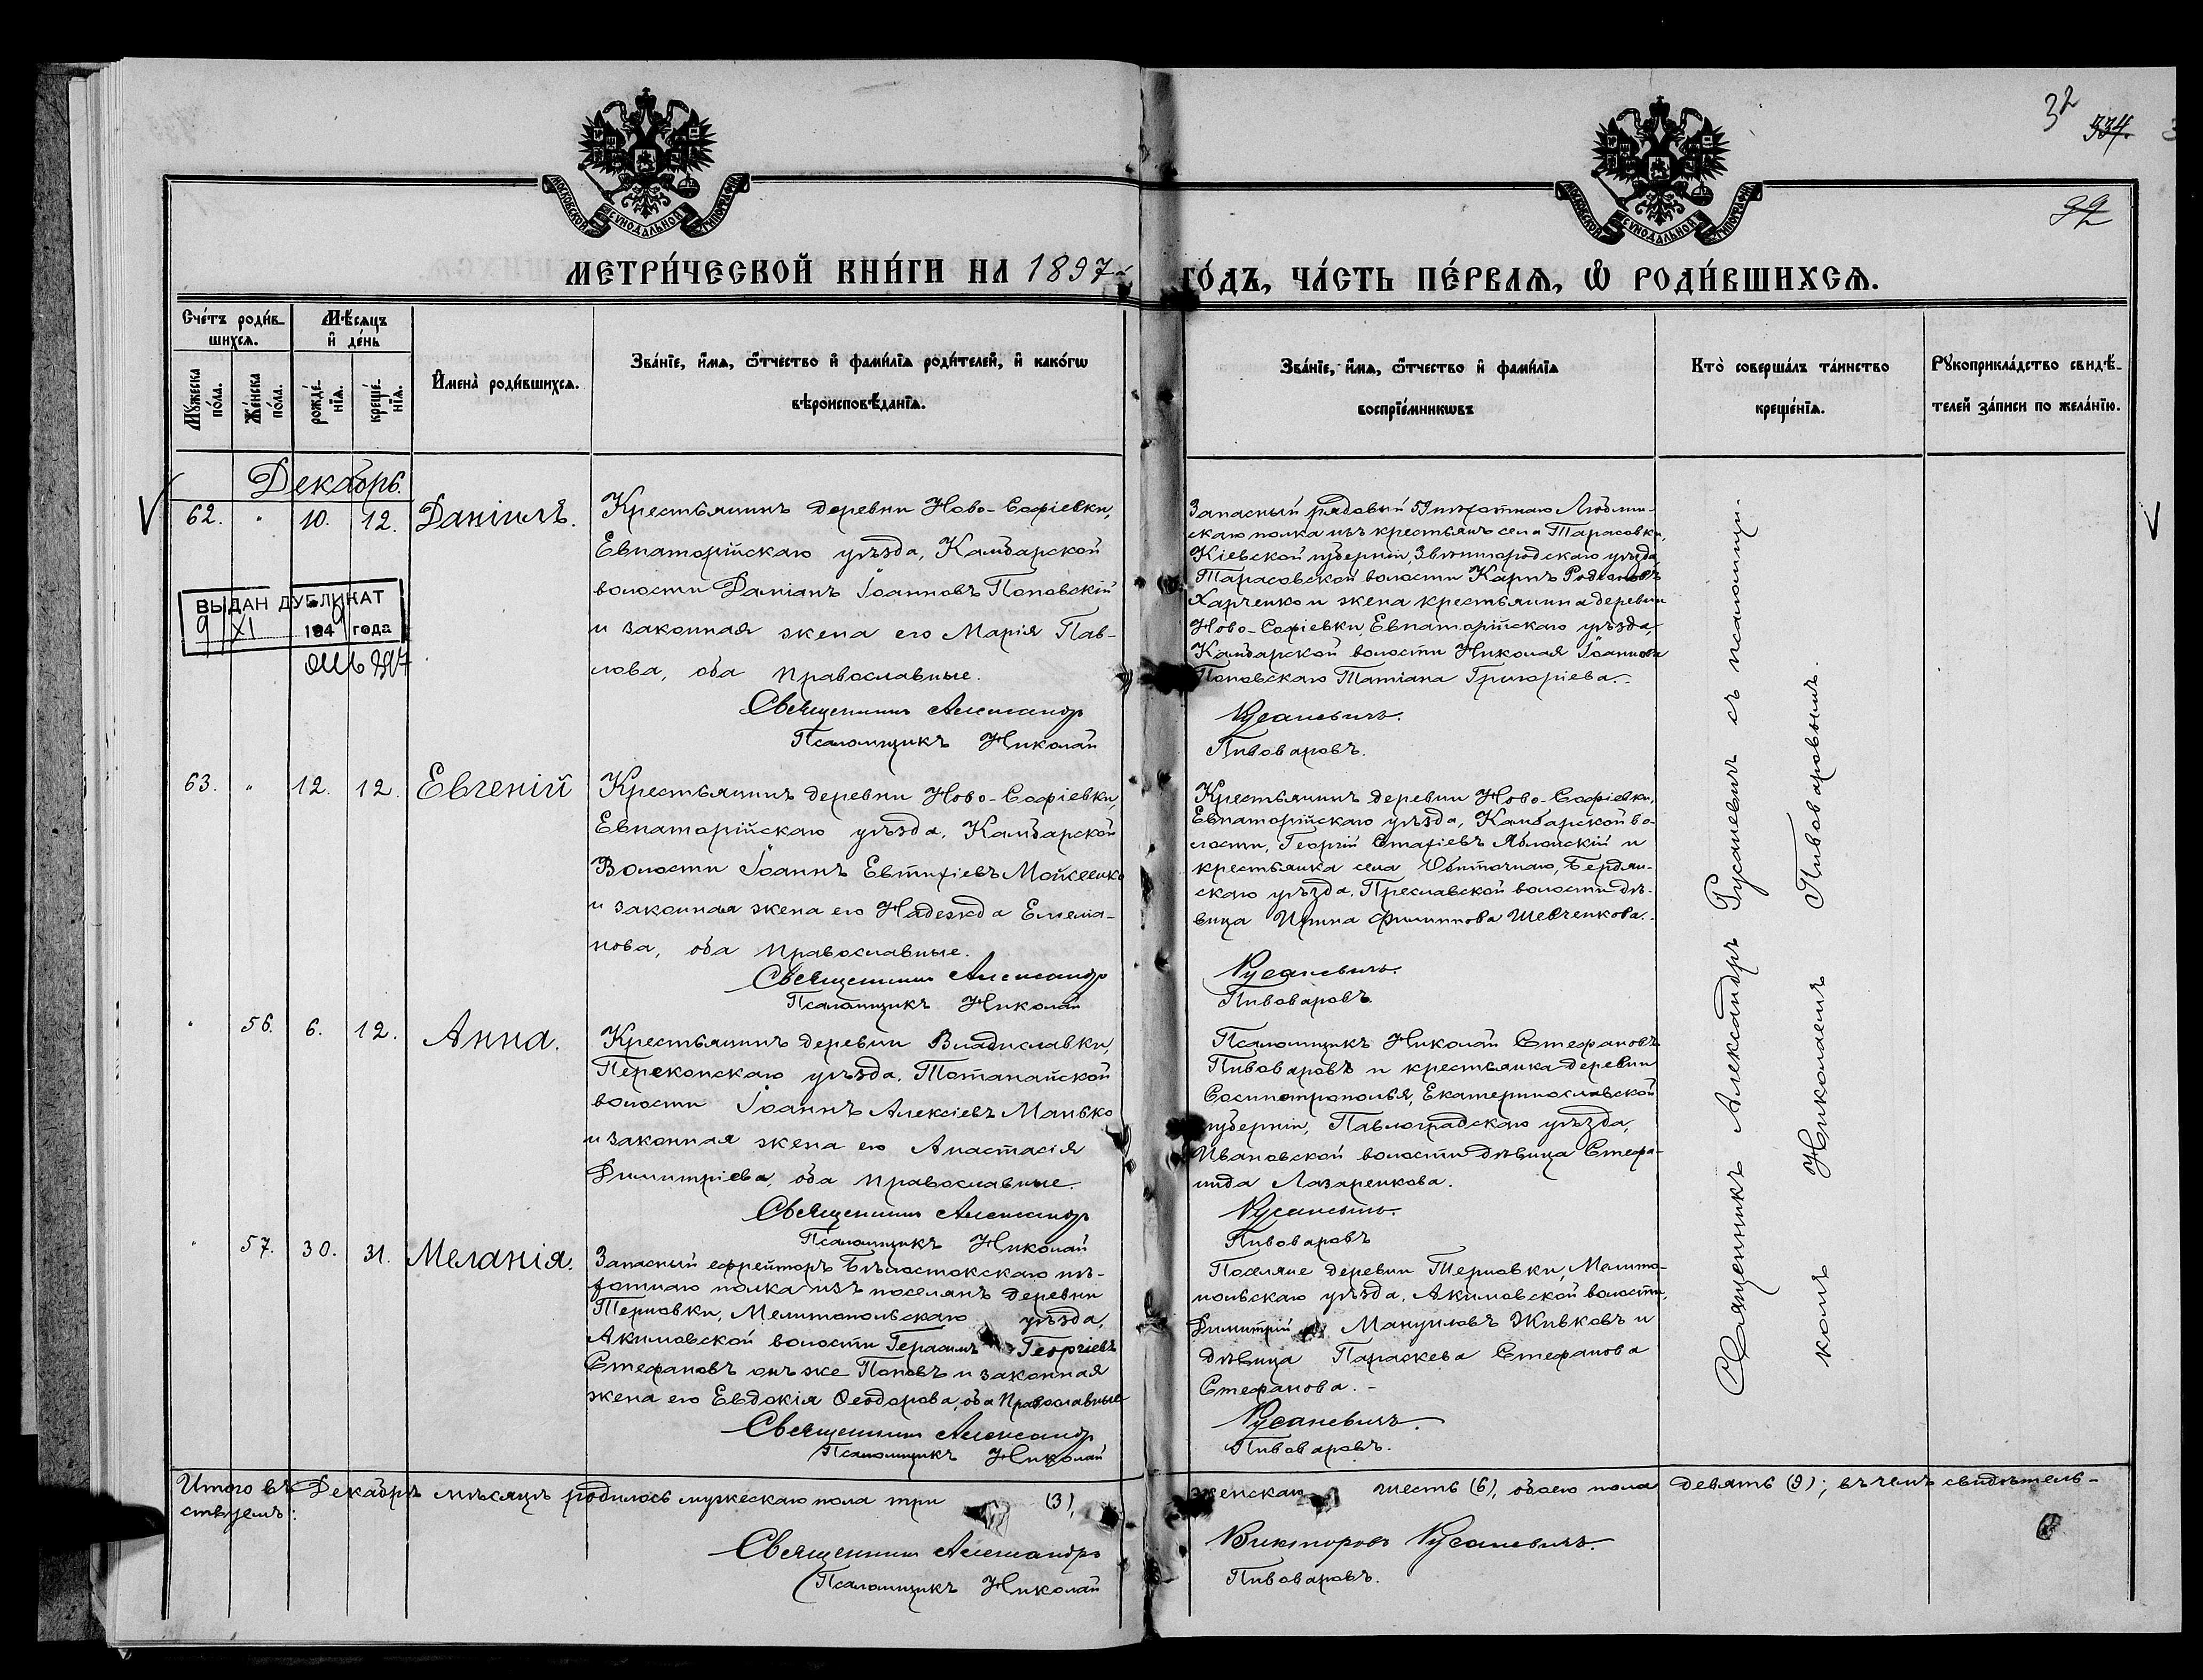 32
334.
92
МОСКОВСКОЙ СѴНОДАЛЬНОЙ ТИПОГРАФІИ
МОСКОВСКОЙ СѴНОДАЛЬНОЙ ТИПОГРАФІИ
МЕТРИ́ЧЕСКОЙ КНИ́ГИ НА 1897
ГО́ДЪ, ЧА́СТЬ ПЕ́РВАѦ, Ѽ РОДИ́ВШИХСѦ.
Сче́тъ роди́в-
шихсѧ.
Мꙋ́жеска по́ла.
Же́нска по́ла.
Мѣ́сѧцъ
и҆ де́нь
рожде́-
нїѧ.
креще́-
нїѧ.
И҆мена̀ роди́вшихсѧ.
Зва́нїе, и҆́мѧ, ѻ҆́тчество и҆ фами́лїѧ роди́телей, и҆ како́гѡ
вѣроисповѣ́данїѧ.
Зва́нїе, и҆́мѧ, ѻ҆́тчество и҆ фами́лїѧ
воспрїе́мникѡвъ
Кто̀ соверша́лъ та́инство
креще́нїѧ.
Рꙋкоприкла́дство свидѣ́-
телей за́писи по жела́нїю.
Декабрь.
62. " 10. 12. Даніилъ.
Крестьянинъ деревни Ново-Софіевки,
Евпаторійскаго уѣзда, Камбарской
волости Даміанъ Іоанновъ Поповскій
и законная жена его Марія Пав-
лова, оба православные.
Священникъ Александръ
Псаломщикъ Николай
Запасный рядовый 59 пѣхотнаго Люблин-
скаго полка изъ крестьянъ села Тарасовки,
Кіевской губерніи, Звенигородскаго уѣзда
Тарасовской волости Карпъ Родіоновъ
Харченко и жена крестьянина деревни
Ново-Софіевки, Евпаторійскаго уѣзда,
Камбарской волости Николая Іоаннова
Поповскаго Татіана Григоріева.
Русаневичъ.
Пивоваровъ.
ВЫДАН ДУБЛИКАТ
9 XI 1949 года
63. " 12. 12. Евгеній
Крестьянинъ деревни Ново-Софіевки,
Евпаторійскаго уѣзда, Камбарской
Волости Іоаннъ Евтихіевъ Мойсеенко
и законная жена его Надежда Емелиа-
нова, оба православные.
Священникъ Александръ
Псаломщикъ Николай
Крестьянинъ деревни Ново-Софіевки,
Евпаторійскаго уѣзда, Камбарской во-
лости, Георгій Стахіевъ Яблонскій и
крестьянка села Обиточнаго, Бердян-
скаго уѣзда, Преславской волости дѣ-
вица Ирина Филиппова Шевченкова.
Русаневичъ.
Пивоваровъ.
" 56. 6. 12. Анна.
Крестьянинъ деревни Владиславки,
Перекопскаго уѣзда, Тотанайской
волости Іоаннъ Алексіевъ Манько
и законная жена его Анастасія
Димитріева, оба православные.
Священникъ Александръ
Псаломщикъ Николай
Псаломщикъ Николай Стефановъ
Пивоваровъ и крестьянка деревни
Сосипотрополья, Екатеринославской
губерніи, Павлоградскаго уѣзда,
Ивановской волости дѣвица Стефа-
нида Лазаренкова.
Русаневичъ.
Пивоваровъ
" 57. 30. 31. Меланія.
Запасный ефрейторъ Бѣлостокскаго пѣ-
хотнаго полка изъ поселянъ деревни
Терновки, Мелитопольскаго уѣзда,
Акимовской волости Герасимъ Георгіевъ
Стефановъ онъ же Поповъ и законная
жена его Евдокія Ѳеодорова, оба православные
Священникъ Александръ
Псаломщикъ Николай
Поселяне деревни Терновки, Мелито-
польскаго уѣзда, Акимовской волости,
Димитрій Мануиловъ Живковъ и
дѣвица Параскева Стефанова
Стефанова.
Русаневичъ.
Пивоваровъ.
Священникъ Александръ Русаневичъ съ псаломщи-
комъ Николаемъ Пивоваровымъ.
Итого въ Декабрѣ мѣсяцѣ родилось мужескаго пола три (3), женскаго шесть (6), обоего пола девять (9); въ чемъ свидѣтель-
ствуемъ:
Священникъ Александръ Викторовъ Русаневичъ.
Псаломщикъ Николай Пивоваровъ.